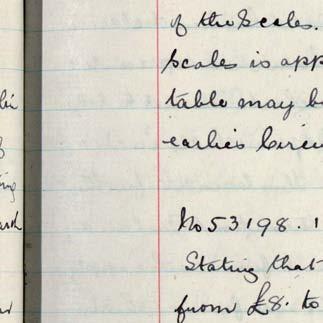 of the Scales.
Scales is app
table may b
earlier Circu
No 53198. 1
Stating that
from £8. to